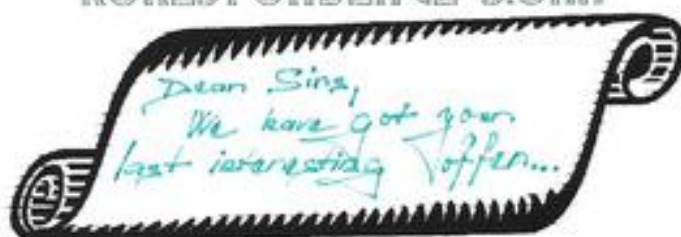 Dear Sirs,
We have got your
last interesting offer...